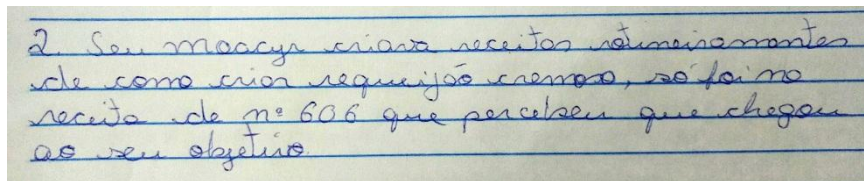 2. Seu Moacyr criava receitas rotineiramontes
de como criar requeijão cremoso, só foi na
receita de nº 606 que percebeu que chegou
ao seu objetivo.